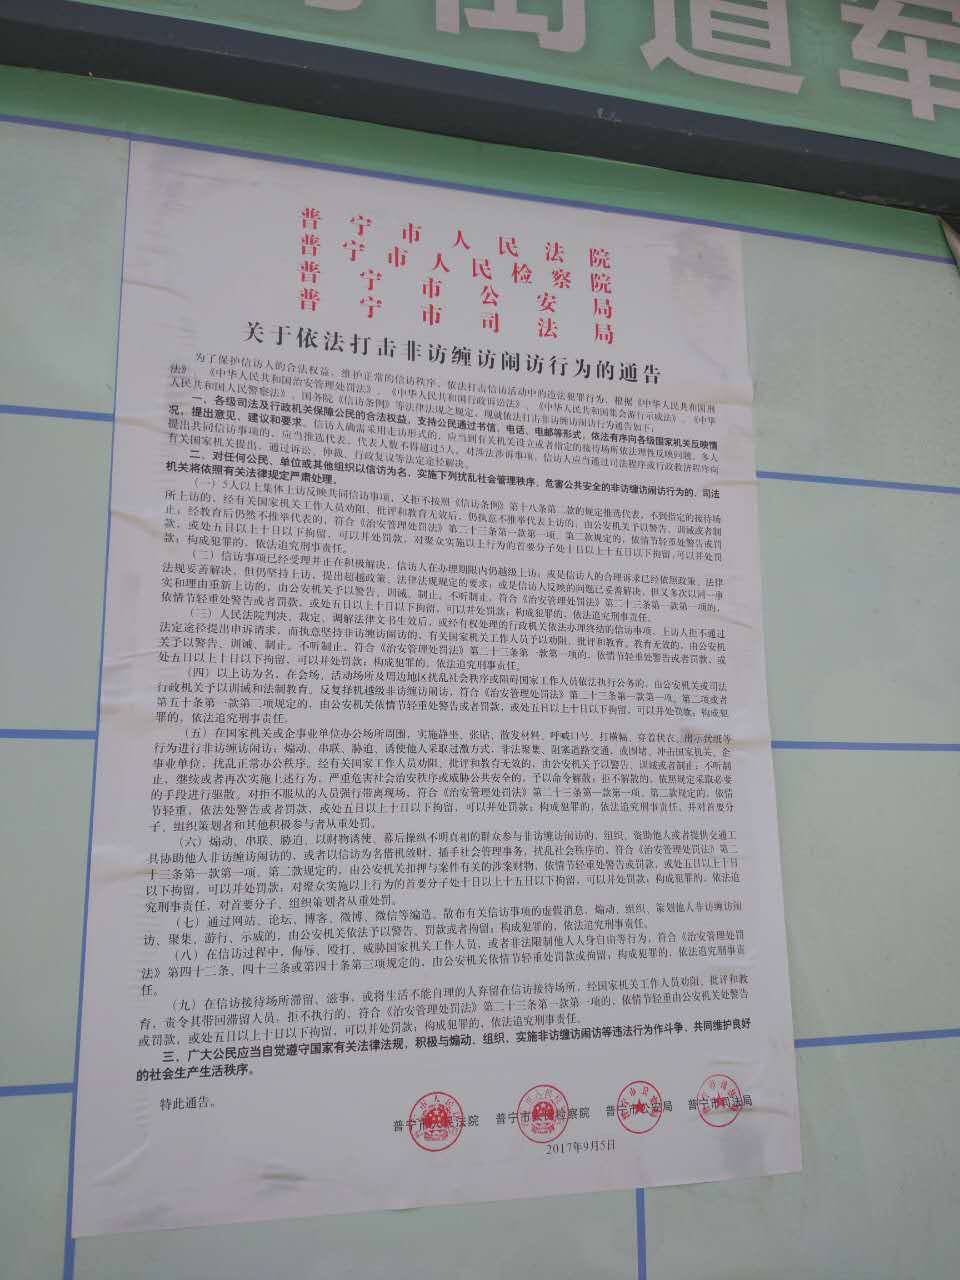 街道军
普宁市人民法院
普宁市人民检察院
普宁市公安局
普宁市司法局
关于依法打击非访缠访闹访行为的通告
为了保护信访人的合法权益，维护正常的信访秩序，依法打击信访活动中的违法犯罪行为，根据《中华人民共和国刑
法》、《中华人民共和国治安管理处罚法》、《中华人民共和国行政诉讼法》、《中华人民共和国集会游行示威法》、《中华
人民共和国人民警察法》、国务院《信访条例》等法律法规之规定，现就依法打击非访缠访闹访行为通告如下：
一、各级司法及行政机关保障公民的合法权益，支持公民通过书信、电话、电邮等形式，依法有序向各级国家机关反映情
况，提出意见、建议和要求。信访人确需采用走访形式的，应当到有关机关设立或者指定的接待场所依法理性反映问题，多人
提出共同信访事项的，应当推选代表，代表人数不得超过5人。对涉法涉诉事项，信访人应当通过司法程序或行政救济程序向
有关国家机关提出，通过诉讼、仲裁、行政复议等法定途径解决。
二、对任何公民、单位或其他组织以信访为名，实施下列扰乱社会管理秩序、危害公共安全的非访缠访闹访行为的，司法
机关将依照有关法律规定严肃处理。
（一）5人以上集体上访反映共同信访事项，又拒不按照《信访条例》第十八条第二款的规定推选代表，不到指定的接待场
所上访的，经有关国家机关工作人员劝阻、批评和教育无效后，仍执意不推举代表上访的，由公安机关予以警告、训诫或者制
止；经教育后仍然不推举代表的，符合《治安管理处罚法》第二十三条第一款第一项、第二款规定的，依情节轻重处警告或罚
款，或处五日以上十日以下拘留，可以并处罚款，对聚众实施以上行为的首要分子处十日以上十五日以下拘留，可以并处罚
款；构成犯罪的，依法追究刑事责任。
（二）信访事项已经受理并正在积极解决，信访人在办理期限内仍越级上访；或是信访人的合理诉求已经依照政策、法律
法规妥善解决，但仍坚持上访，提出超越政策、法律法规规定的要求；或是信访人反映的问题已妥善解决，但又多次以同一事
实和理由重新上访的，由公安机关予以警告、训诫、制止。不听制止，符合《治安管理处罚法》第二十三条第一款第一项的，
依情节轻重处警告或者罚款，或处五日以上十日以下拘留，可以并处罚款；构成犯罪的，依法追究刑事责任。
（三）人民法院判决、裁定、调解法律文书生效后，或经有权处理的行政机关依法办理终结的信访事项，上访人拒不通过
法定途径提出申诉请求，而执意坚持非访缠访闹访的，有关国家机关工作人员予以劝阻、批评和教育。教育无效的，由公安机
关予以警告、训诫、制止。不听制止，符合《治安管理处罚法》第二十三条第一款第一项的，依情节轻重处警告或者罚款，或
处五日以上十日以下拘留，可以并处罚款；构成犯罪的，依法追究刑事责任。
（四）以上访为名，在会场、活动场所及周边地区扰乱社会秩序或阻碍国家工作人员依法执行公务的，由公安机关或司法
行政机关予以训诫和法制教育。反复择机越级非访缠访闹访，符合《治安管理处罚法》第二十三条第一款第一项、第二项或者
第五十条第一款第二项规定的，由公安机关依情节轻重处警告或者罚款，或处五日以上十日以下拘留，可以并处罚款；构成犯
罪的，依法追究刑事责任。
（五）在国家机关或企事业单位办公场所周围，实施静坐、张贴、散发材料、呼喊口号、打横幅、穿着状衣、出示状纸等
行为进行非访缠访闹访；煽动、串联、胁迫、诱使他人采取过激方式，非法聚集、阻塞道路交通，或围堵、冲击国家机关、企
事业单位，扰乱正常办公秩序。经有关国家工作人员劝阻、批评和教育无效的，由公安机关予以警告、训诫或者制止；不听制
止，继续或者再次实施上述行为，严重危害社会治安秩序或威胁公共安全的，予以命令解散；拒不解散的，依照规定采取必要
的手段进行驱散，对拒不服从的人员强行带离现场，符合《治安管理处罚法》第二十三条第一款第一项、第二款规定的，依情
节轻重，依法处警告或者罚款，或处五日以上十日以下拘留，可以并处罚款；构成犯罪的，依法追究刑事责任，并对首要分
子、组织策划者和其他积极参与者从重处罚。
（六）煽动、串联、胁迫、以财物诱使、幕后操纵不明真相的群众参与非访缠访闹访的，组织、资助他人或者提供交通工
具协助他人非访缠访闹访的，或者以信访为名借机敛财，插手社会管理事务，扰乱社会秩序的，符合《治安管理处罚法》第二
十三条第一款第一项、第二款规定的，由公安机关扣押与案件有关的涉案财物，依情节轻重处警告或者罚款，或处五日以上十日
以下拘留，可以并处罚款；对聚众实施以上行为的首要分子处十日以上十五日以下拘留，可以并处罚款；构成犯罪的，依法追
究刑事责任，对首要分子、组织策划者从重处罚。
（七）通过网站、论坛、博客、微博、微信等编造、散布有关信访事项的虚假消息，煽动、组织、策划他人非访缠访闹
访、聚集、游行、示威的，由公安机关依法予以警告、罚款或者拘留；构成犯罪的，依法追究刑事责任。
（八）在信访过程中，侮辱、殴打、威胁国家机关工作人员，或者非法限制他人人身自由等行为，符合《治安管理处罚
法》第四十二条、四十三条或第四十条第三项规定的，由公安机关依情节轻重处罚款或拘留；构成犯罪的，依法追究刑事责
任。
（九）在信访接待场所滞留、滋事，或将生活不能自理的人弃留在信访接待场所，经国家机关工作人员劝阻、批评和教
育，责令其带回滞留人员，拒不执行的，符合《治安管理处罚法》第二十三条第一款第一项的，依情节轻重由公安机关处警告
或罚款，或处五日以上十日以下拘留，可以并处罚款；构成犯罪的，依法追究刑事责任。
三、广大公民应当自觉遵守国家有关法律法规，积极与煽动、组织、实施非访缠访闹访等违法行为作斗争，共同维护良好
的社会生产生活秩序。
特此通告。
普宁市人民法院 普宁市人民检察院 普宁市公安局 普宁市司法局
2017年9月5日